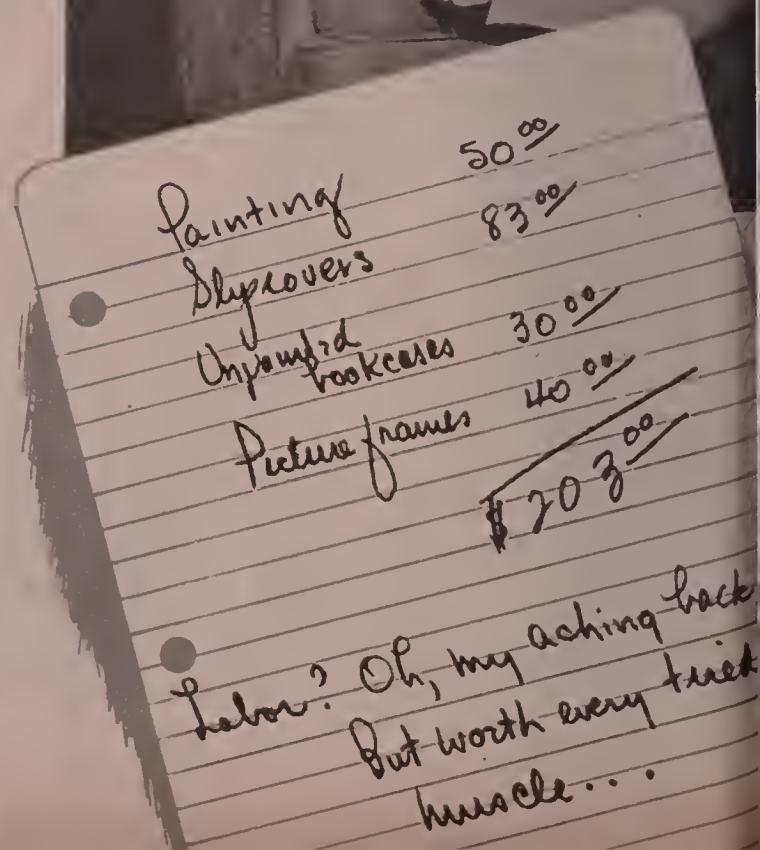 Painting 50 00
Slipcovers 83 00
Unpainted
bookcases 30 00
Picture frames 40 00
$ 203 00
Labor? Oh, my aching back
But worth every tired
muscle....